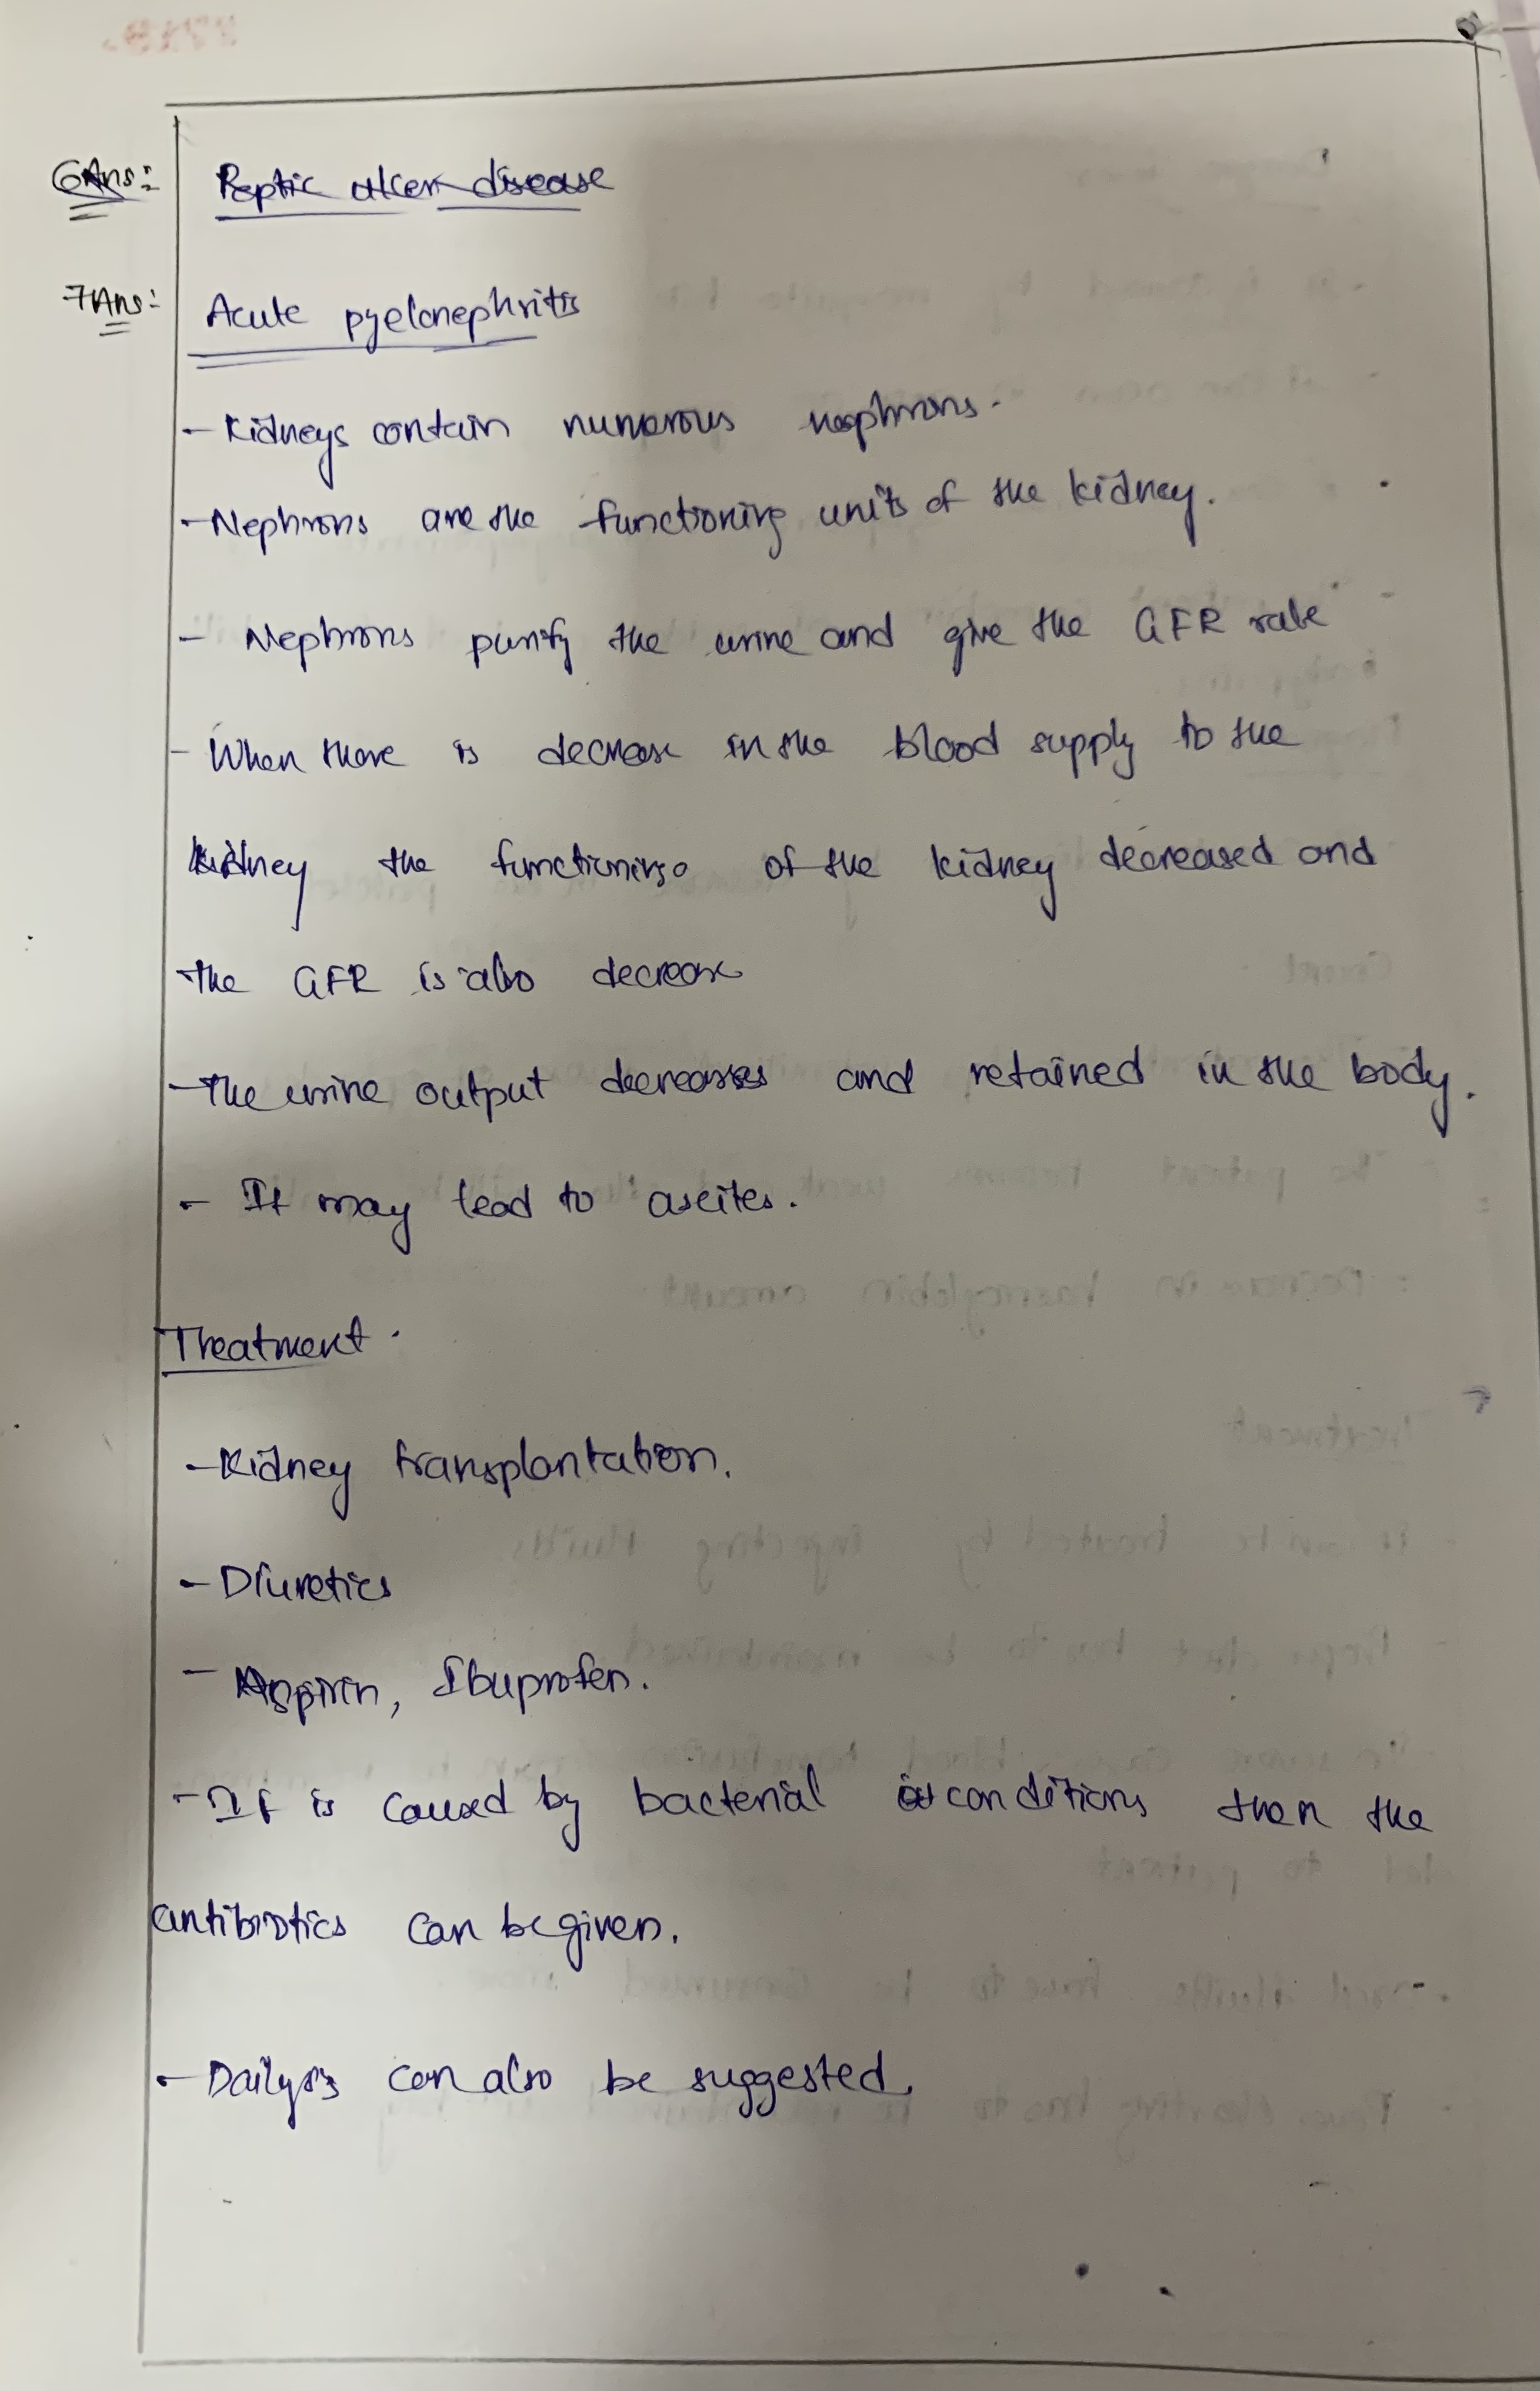 6Ans:
Peptic ulcer disease
7Ans:
Acute pyelonephritis
- Kidneys contain numerous nephrons.
- Nephrons are the functioning units of the kidney.
- Nephrons purify the urine and give the GFR rate
- When there is decrease in the blood supply to the
kidney the functioning of the kidney decreased and
the GFR is also decrease
- The urine output decreases and retained in the body.
- It may lead to ascites.
Treatment.
- Kidney transplantation.
- Diuretics
- Aspirin, Ibuprofen.
- If is caused by bacterial conditions then the
antibiotics can be given.
- Dailysis can also be suggested.